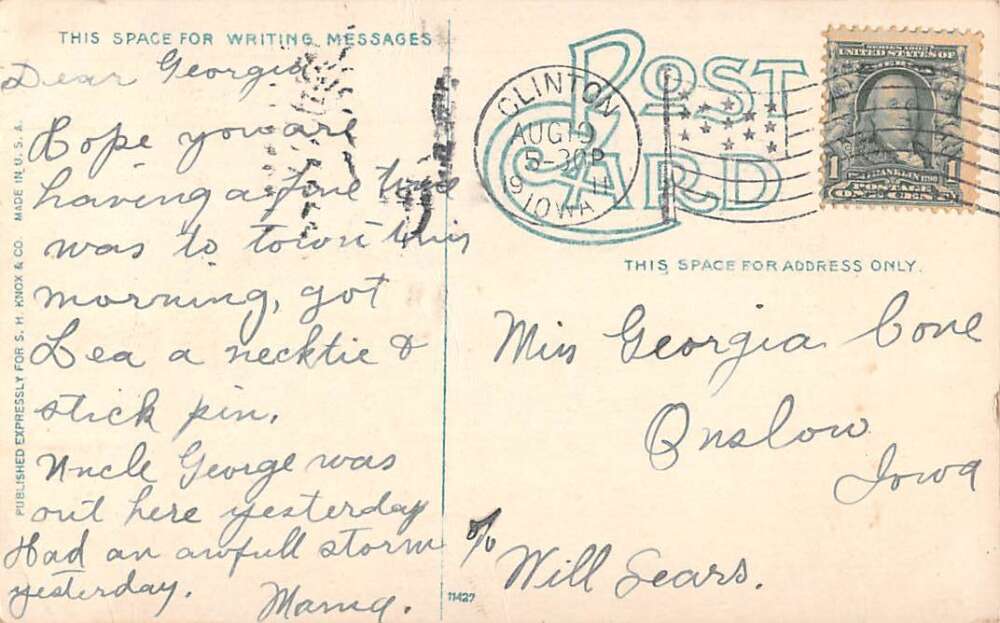 THIS SPACE FOR WRITING MESSAGES
Dear Georgia
Hope you are
having a fine time
was to town this
morning, got
Lea a necktie &
stick pin.
Uncle George was
out here yesterday
Had an awfull storm
yesterday. Mama.
PUBLISHED EXPRESSLY FOR S. H. KNOX & CO. MADE IN U.S.A.
POST CARD
CLINTON
AUG 19
5-30P
1911
IOWA
SERIES 1902
UNITED STATES OF
AMERICA
FRANKLIN
POSTAGE
1 ONE CENT 1
THIS SPACE FOR ADDRESS ONLY.
Miss Georgia Cone
Onslow
Iowa
c/o
Will Sears.
11427